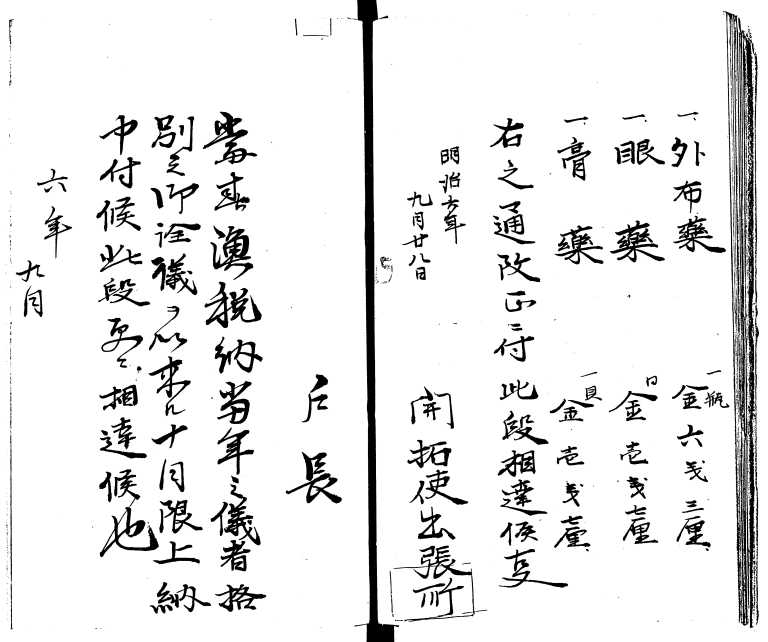 一外布藥 一瓶 金六戔三厘
一眼藥 同 金壱戔七厘
一膏藥 一貝 金壱戔壱厘
右之通改正ニ付此段相達候事
明治六年
九月廿八日
開拓使出張所
戸長
当春漁税納当年之儀者格
別之御詮儀ヲ以来ル十月限上納
申付候此段更ニ相達候也
六年
九月